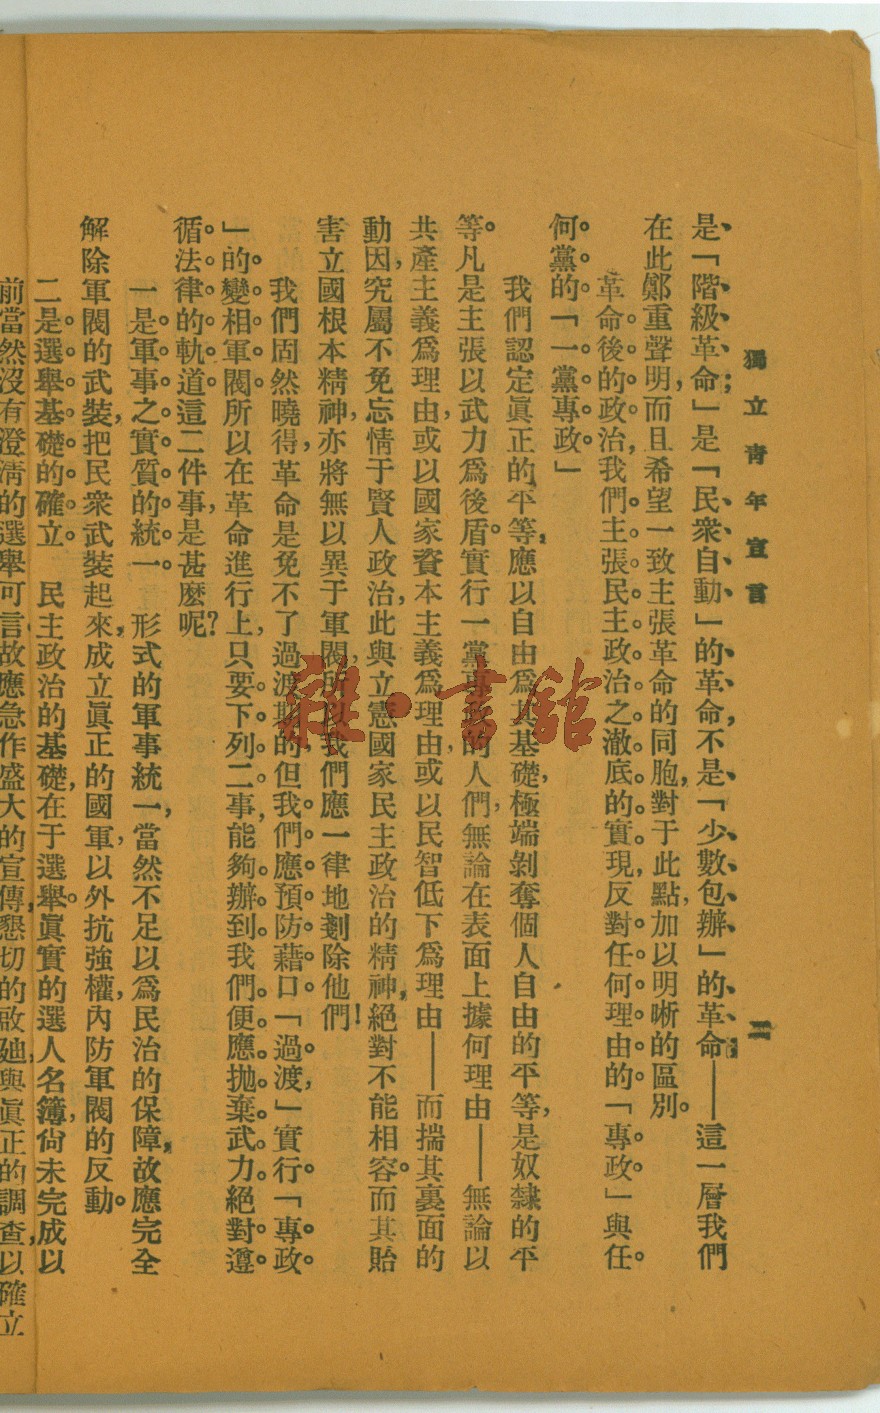 獨立青年宣言
二
是「階級革命」;是「民衆自動」的革命,不是「少數包辦」的革命——這一層我們
在此鄭重聲明,而且希望一致主張革命的同胞,對于此點,加以明晰的區別。
革命後的政治,我們主張民主政治之澈底的實現,反對任何理由的「專政」與任
何黨的「一黨專政」
我們認定眞正的平等,應以自由爲其基礎,極端剝奪個人自由的平等,是奴隸的平
等。凡是主張以武力爲後盾。實行一黨專政的人們,無論在表面上據何理由——無論以
共產主義爲理由,或以國家資本主義爲理由,或以民智低下爲理由——而揣其裏面的
動因,究屬不免忘情于賢人政治,此與立憲國家民主政治的精神,絕對不能相容。而其貽
害立國根本精神,亦將無以異于軍閥,所以我們應一律地剗除他們!
我們固然曉得,革命是免不了過渡期的,但我們應預防藉口「過渡,」實行「專政
」的變相軍閥。所以在革命進行上,只要下列二事,能夠辦到,我們便應拋棄武力,絕對遵
循法律的軌道。這二件事,是甚麽呢?
一是軍事之實質的統一。 形式的軍事統一,當然不足以爲民治的保障,故應完全
解除軍閥的武裝,把民衆武裝起來,成立眞正的國軍,以外抗強權,內防軍閥的反動。
二是選舉基礎的確立。 民主政治的基礎,在于選舉。眞實的選人名簿,尙未完成以
前,當然沒有澄淸的選舉可言,故應急作盛大的宣傳,懇切的啟廸,與眞正的調查,以確立
雜·書館